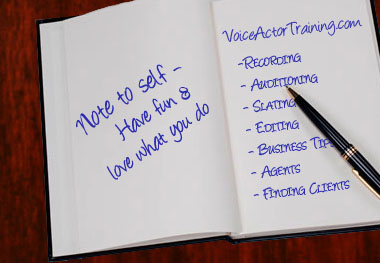 Note to self -
Have fun &
love what you do
VoiceActorTraining.com
-Recording
- Auditioning
- Slating
- Editing
- Business Tips
- Agents
- Finding Clients